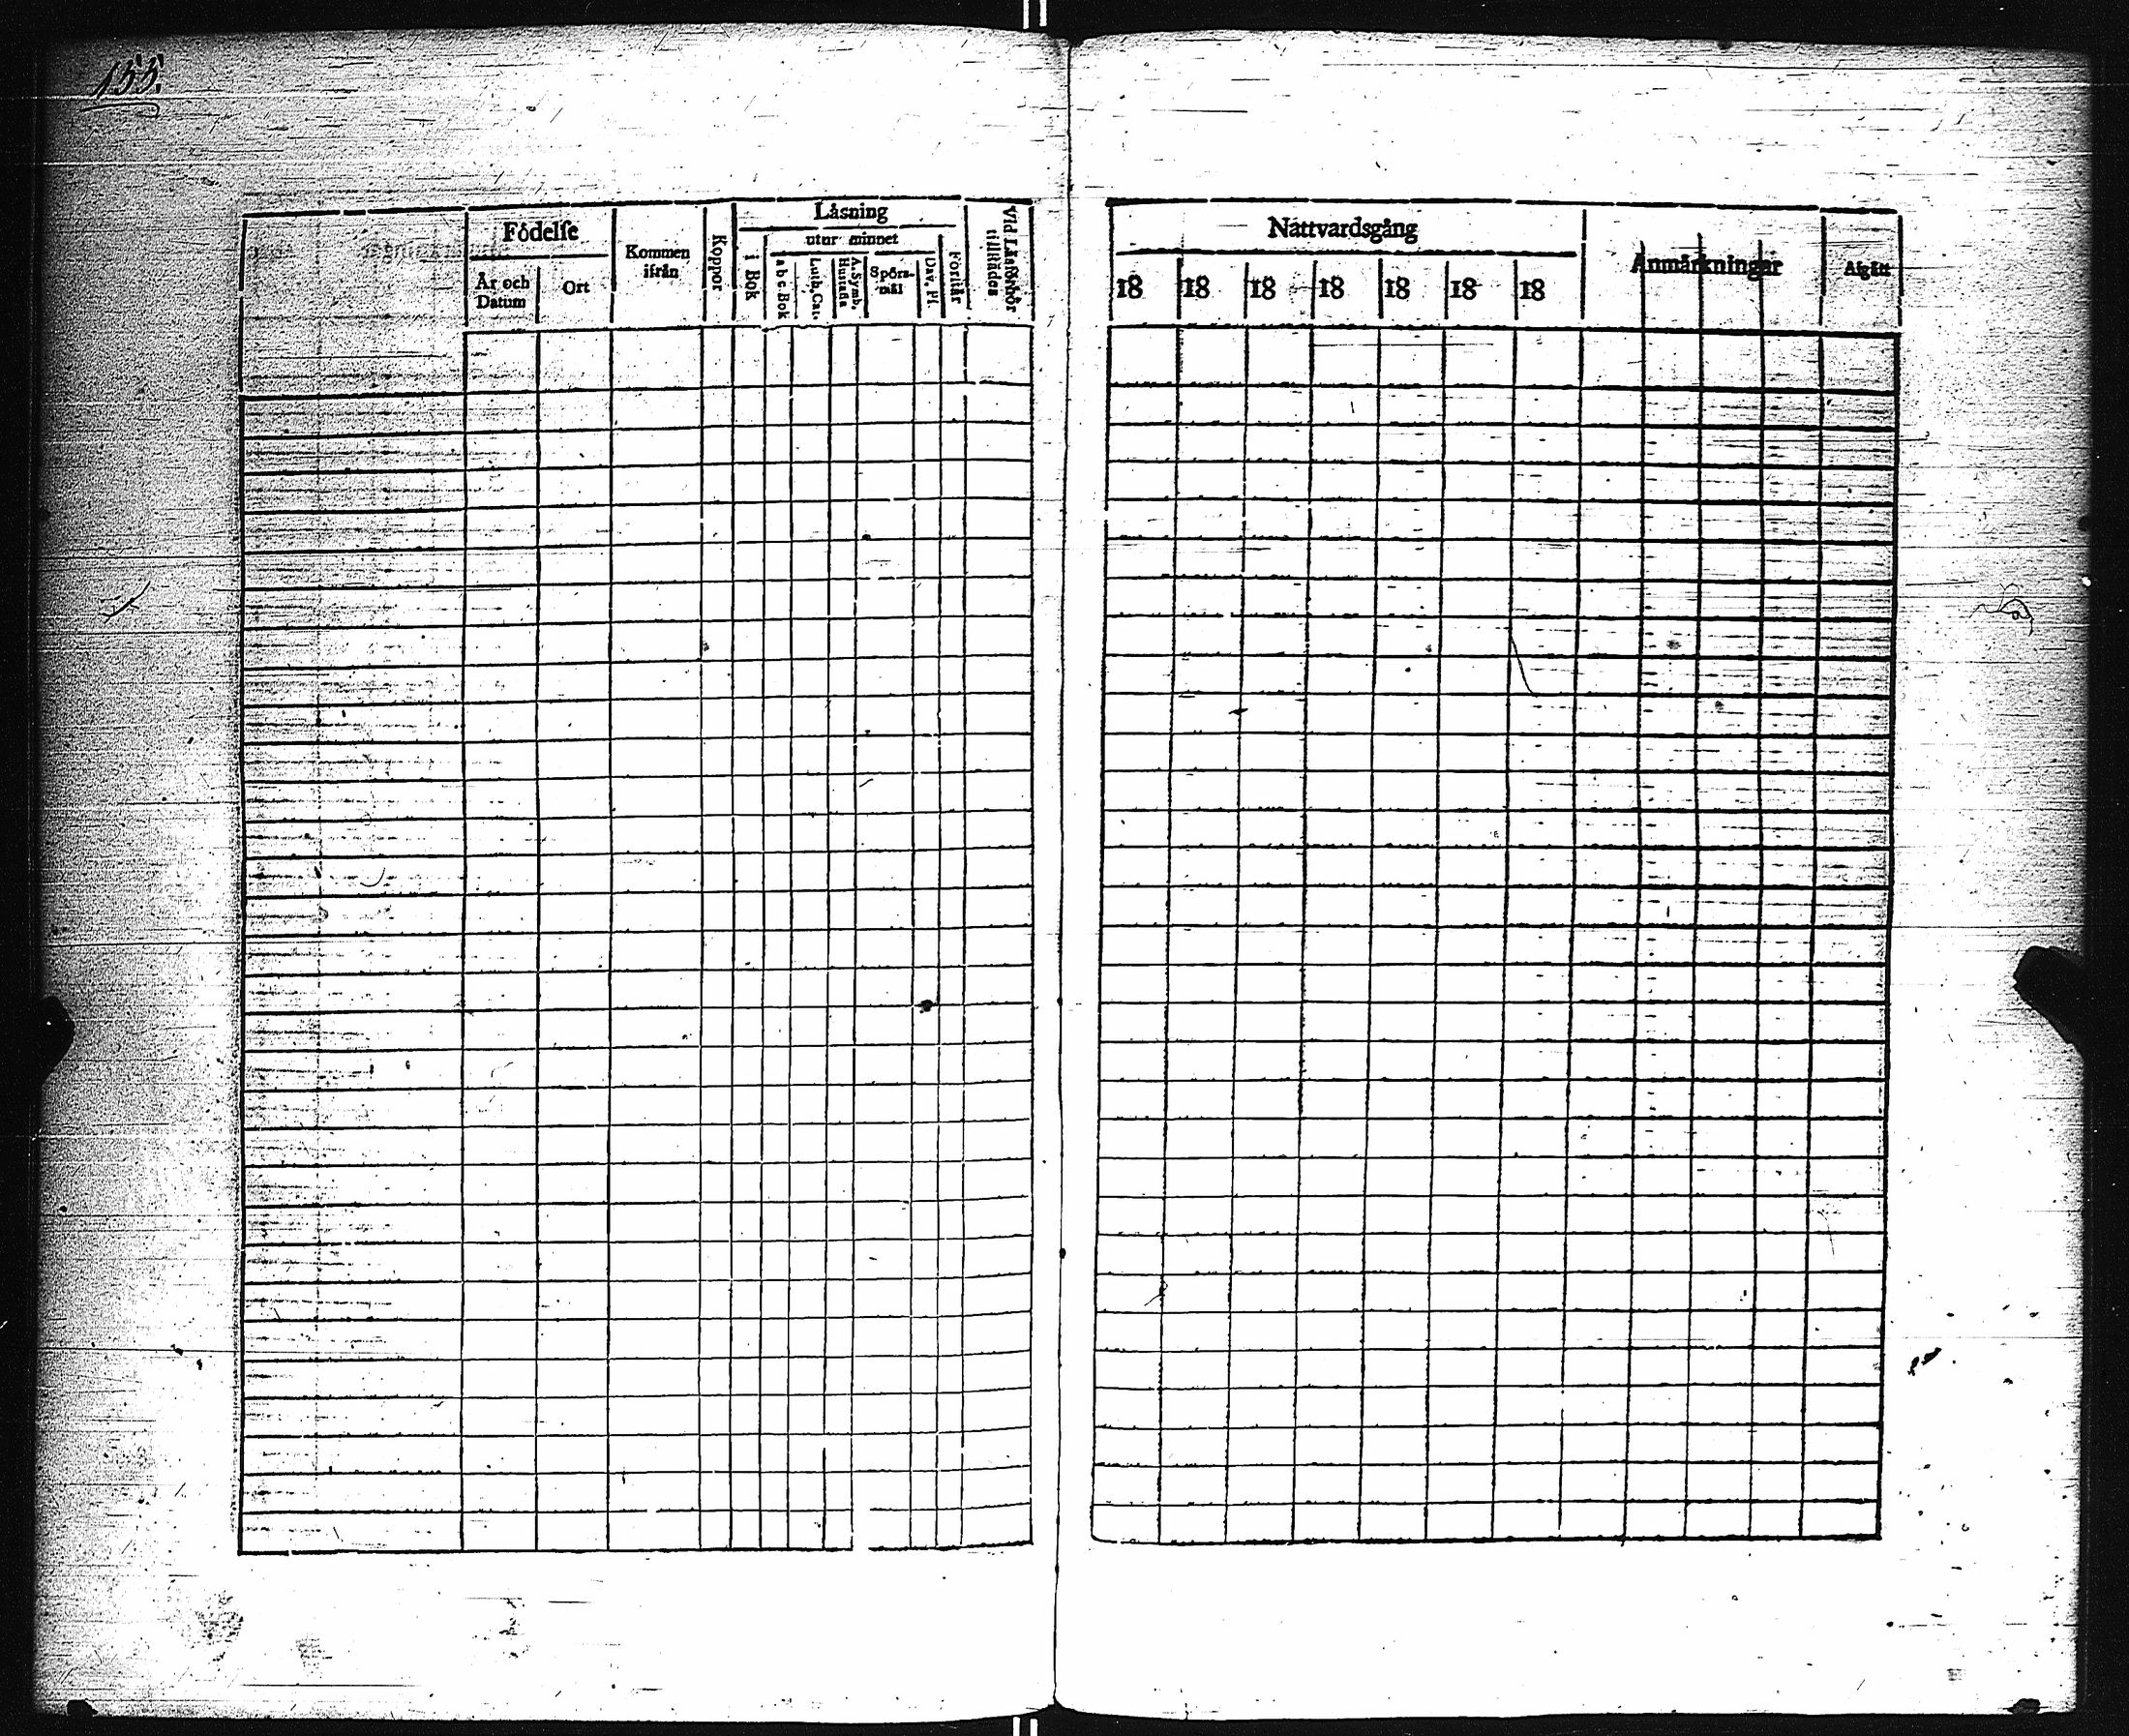 155.
Födelse
År och Datum
Ort
Kommen ifrån
Koppor
Läsning
i Bok
utur minnet
a b c. Bok
Luth. Cat.
A. Symb. Hustafla
Spörsmål
Dav. Ps.
Förstår
Vid Läsförhör tillstädes
Nattvardsgång
18 18 18 18 18 18 18
Anmärkningar
Afgått